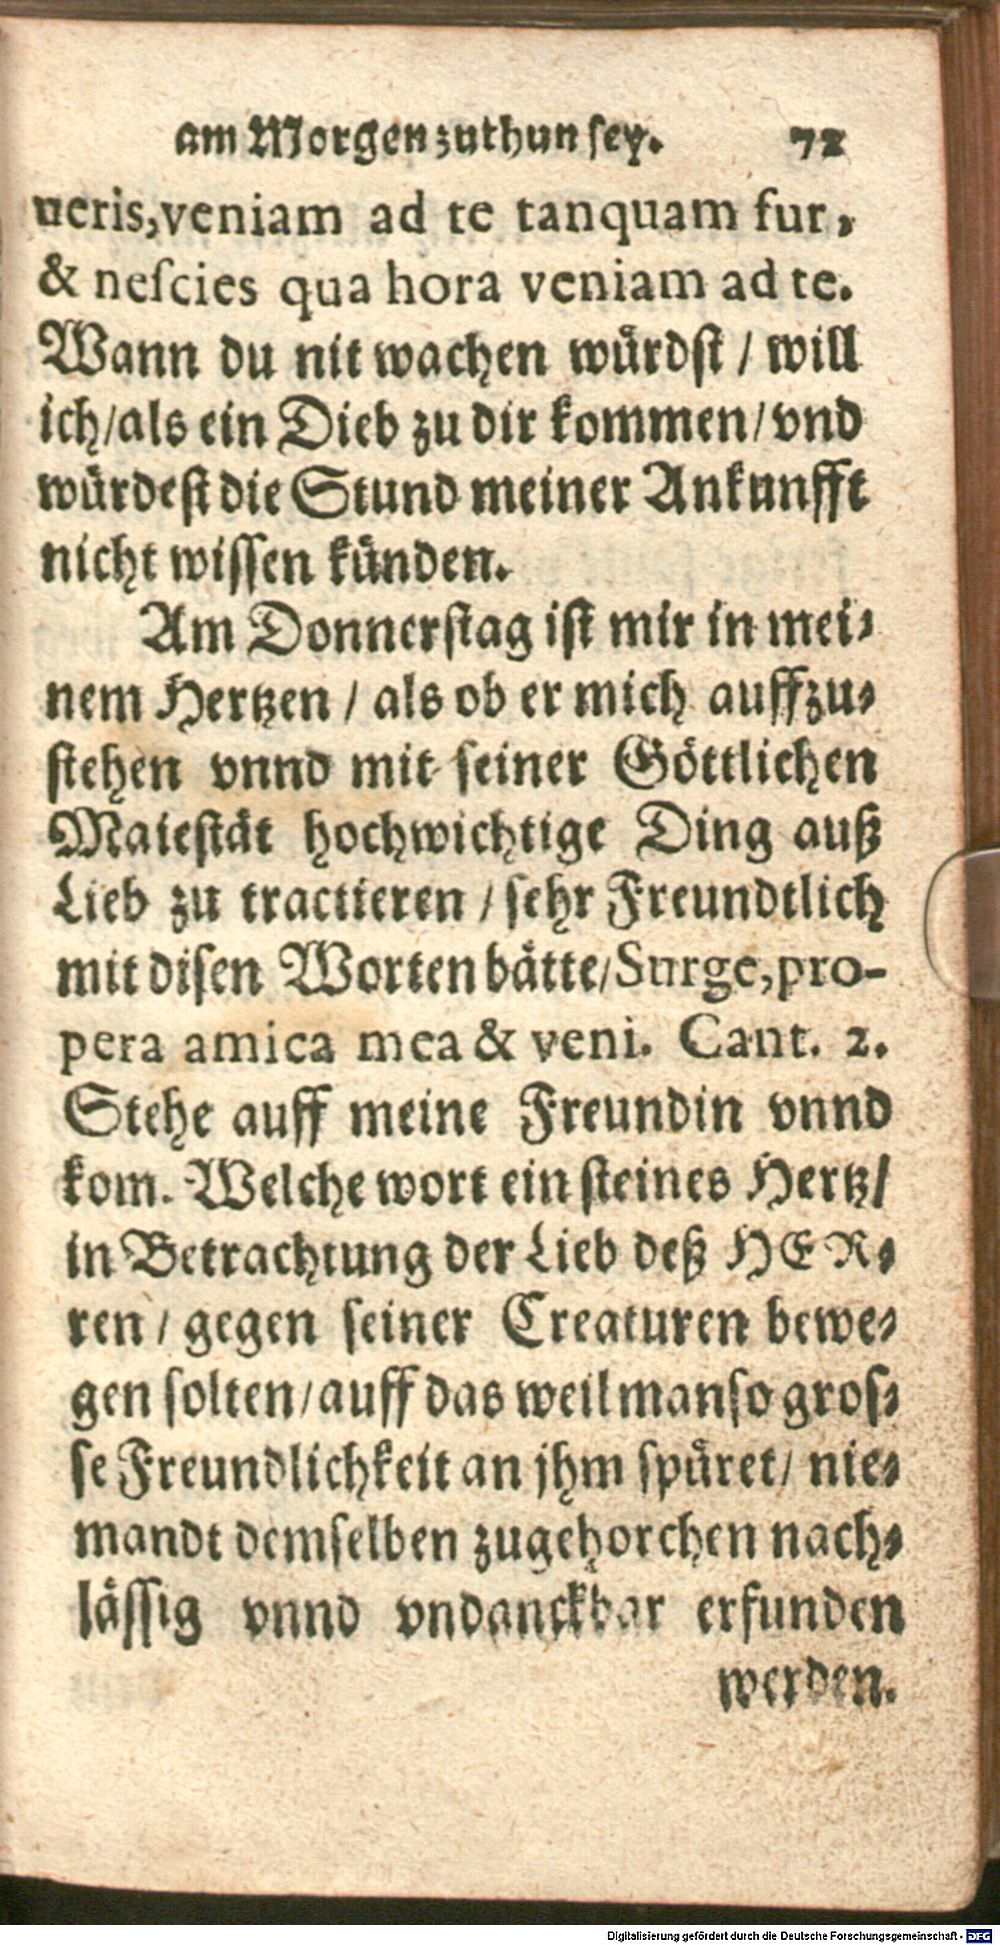 am Morgen zuthun sey. 72
ueris, veniam ad te tanquam fur,
& neſcies qua hora veniam ad te.
Wann du nit wachen wuͤrdſt / will
ich / als ein Dieb zu dir kommen / vnd
wuͤrdeſt die Stund meiner Ankunfft
nicht wiſſen kuͤnden.
Am Donnerſtag iſt mir in mei⸗
nem Hertzen / als ob er mich auffzu⸗
ſtehen vnnd mit ſeiner Goͤttlichen
Maieſtaͤt hochwichtige Ding auß
Lieb zu tractieren / ſehr Freundtlich
mit diſen Worten baͤtte / Surge, pro-
pera amica mea & veni. Cant. 2.
Stehe auff meine Freundin vnnd
kom. Welche wort ein ſteines Hertz /
in Betrachtung der Lieb deß HER⸗
ren / gegen ſeiner Creaturen bewe⸗
gen ſolten / auff das weil man ſo groſ⸗
ſe Freundlichkeit an jhm ſpuͤret / nie⸗
mandt demſelben zugehorchen nach⸗
laͤſſig vnnd vndanckbar erfunden
werden.
Digitalisierung gefördert durch die Deutsche Forschungsgemeinschaft - DFG